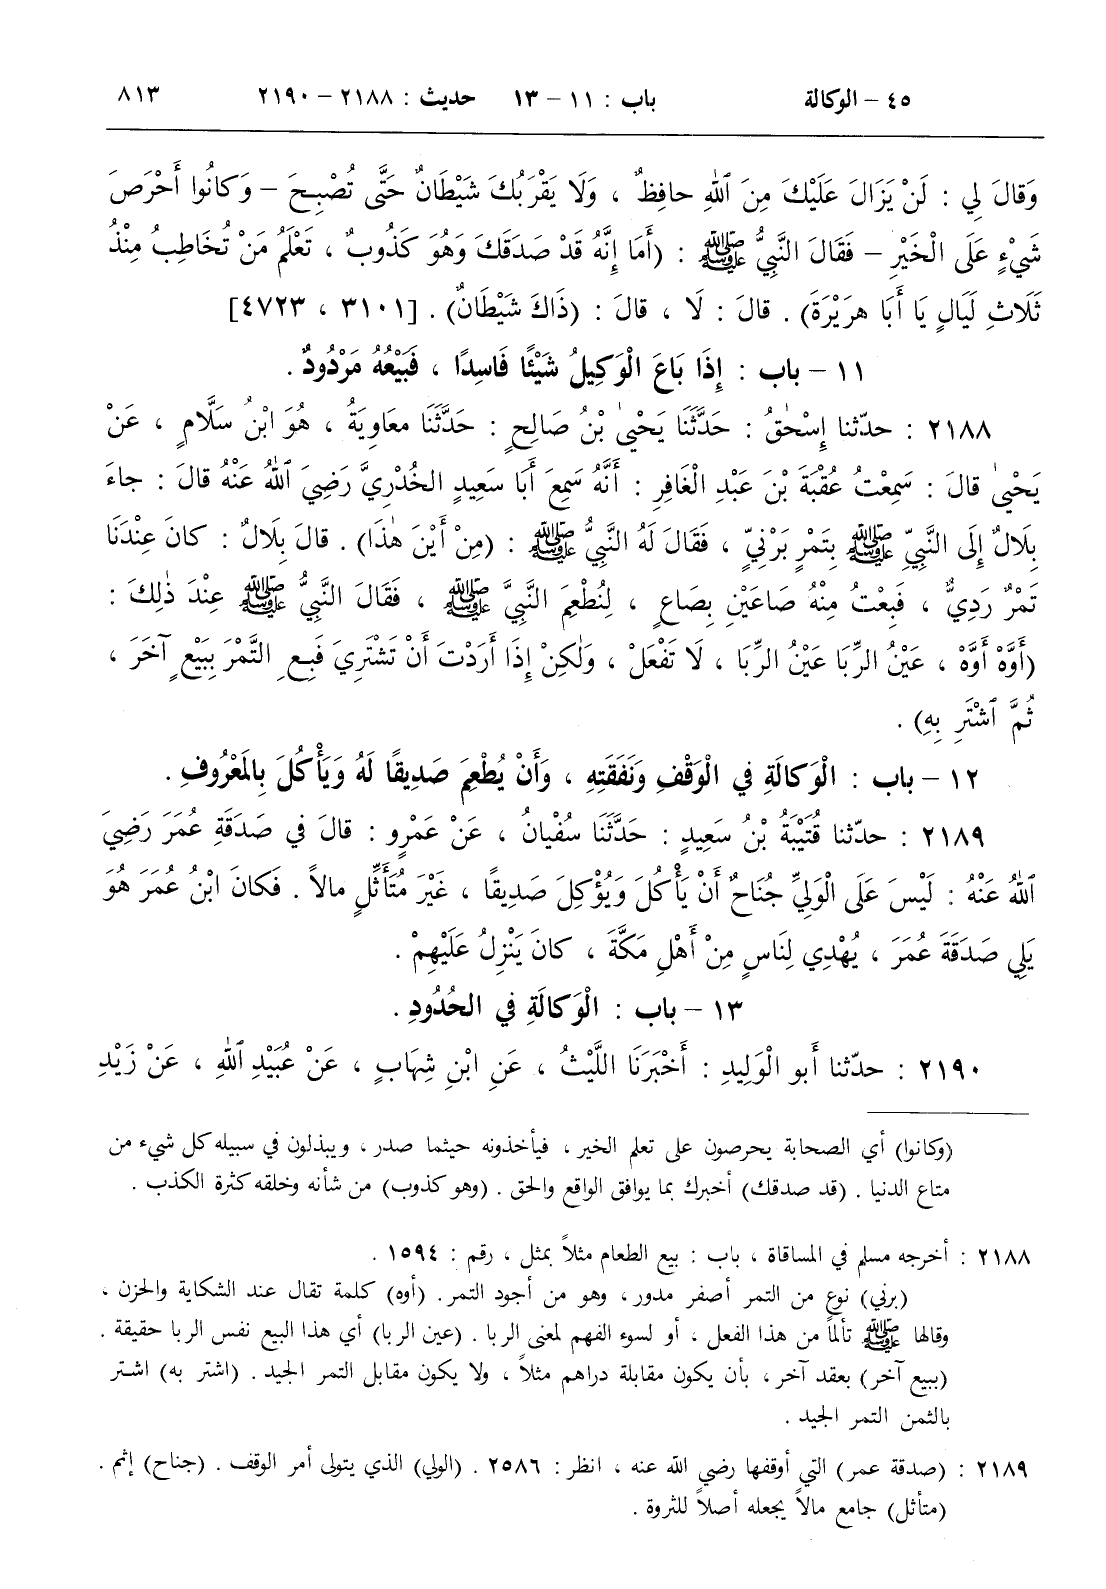 ٤٥ - الوكالة باب : ١١ - ١٣ حديث : ٢١٨٨ - ٢١٩٠ ٨١٣
وَقالَ لِي : لَنْ يَزَالَ عَلَيْكَ مِنَ ٱللهِ حافِظٌ ، وَلَا يَقْرَبُكَ شَيْطَانٌ حَتَّى تُصْبِحَ – وَكانُوا أَحْرَصَ
شَيْءٍ عَلَى الْخَيْرِ – فَقَالَ النَّبِيُّ ﷺ : (أَمَا إِنَّهُ قَدْ صَدَقَكَ وَهُوَ كَذُوبٌ ، تَعْلَمُ مَنْ تُخَاطِبُ مُنْذُ
ثَلَاثِ لَيَالٍ يَا أَبَا هرَيْرَةَ) . قالَ : لَا ، قالَ : (ذَاكَ شَيْطَانٌ) . [٣١٠١ ، ٤٧٢٣]
١١ – باب : إِذَا بَاعَ الْوَكِيلُ شَيْئًا فَاسِدًا ، فَبَيْعُهُ مَرْدُودٌ .
٢١٨٨ : حدّثنا إِسْحٰقُ : حَدَّثَنَا يَحْيىٰ بْنُ صَالِحٍ : حَدَّثَنَا معَاوِيَةُ ، هُوَ ابْنُ سَلَّامٍ ، عَنْ
يَحْيىٰ قالَ : سَمِعْتُ عُقْبَةَ بْنَ عَبْدِ الْغَافِرِ : أَنَّهُ سَمِعَ أَبَا سَعِيدٍ الخُدْرِيَّ رَضِيَ ٱللهُ عَنْهُ قالَ : جاءَ
بِلَالٌ إِلَى النَّبِيِّ ﷺ بِتَمْرٍ بَرْنِيٍّ ، فَقَالَ لَهُ النَّبِيُّ ﷺ : (مِنْ أَيْنَ هٰذَا) . قالَ بِلَالٌ : كانَ عِنْدَنَا
تَمْرٌ رَدِيٌّ ، فَبِعْتُ مِنْهُ صَاعَيْنِ بِصَاعٍ ، لِنُطْعِمَ النَّبِيَّ ﷺ ، فَقَالَ النَّبِيُّ ﷺ عِنْدَ ذٰلِكَ :
(أَوَّهْ أَوَّهْ ، عَيْنُ الرِّبَا عَيْنُ الرِّبَا ، لَا تَفْعَلْ ، وَلٰكِنْ إِذَا أَرَدْتَ أَنْ تَشْتَرِيَ فَبِعِ التَّمْرَ بِبَيْعٍ آخَرَ ،
ثُمَّ ٱشْتَرِ بِهِ) .
١٢ – باب : الْوَكالَةِ فِي الْوَقْفِ وَنَفَقَتِهِ ، وَأَنْ يُطْعِمَ صَدِيقًا لَهُ وَيَأْكُلَ بِالمَعْرُوفِ .
٢١٨٩ : حدّثنا قُتَيْبَةُ بْنُ سَعِيدٍ : حَدَّثَنَا سُفْيَانُ ، عَنْ عَمْرٍو : قالَ في صَدَقَةِ عُمَرَ رَضِيَ
ٱللهُ عَنْهُ : لَيْسَ عَلَى الْوَلِيِّ جُنَاحٌ أَنْ يَأْكُلَ وَيُؤْكِلَ صَدِيقًا ، غَيْرَ مُتَأَثِّلٍ مالاً . فَكانَ ابْنُ عُمَرَ هُوَ
يَلِي صَدَقَةَ عُمَرَ ، يُهْدِي لِنَاسٍ مِنْ أَهْلِ مَكَّةَ ، كانَ يَنْزِلُ عَلَيْهِمْ .
١٣ – باب : الْوَكالَةِ فِي الحُدُودِ .
٢١٩٠ : حدّثنا أَبو الْوَلِيدِ : أَخْبَرَنَا اللَّيْثُ ، عَنِ ابْنِ شِهَابٍ ، عَنْ عُبَيْدِ ٱللهِ ، عَنْ زَيْدِ
(وكانوا) أي الصحابة يحرصون على تعلم الخير ، فيأخذونه حيثما صدر ، ويبذلون في سبيله كل شيء من
متاع الدنيا . (قد صدقك) أخبرك بما يوافق الواقع والحق . (وهو كذوب) من شأنه وخلقه كثرة الكذب .
٢١٨٨ : أخرجه مسلم في المساقاة ، باب : بيع الطعام مثلاً بمثل ، رقم : ١٥٩٤ .
(برني) نوع من التمر أصفر مدور ، وهو من أجود التمر . (أوه) كلمة تقال عند الشكاية والحزن ،
وقالها ﷺ تألماً من هذا الفعل ، أو لسوء الفهم لمعنى الربا . (عين الربا) أي هذا البيع نفس الربا حقيقة .
(ببيع آخر) بعقد آخر ، بأن يكون مقابلة دراهم مثلاً ، ولا يكون مقابل التمر الجيد . (اشتر به) اشتر
بالثمن التمر الجيد .
٢١٨٩ : (صدقة عمر) التي أوقفها رضي الله عنه ، انظر : ٢٥٨٦ . (الولي) الذي يتولى أمر الوقف . (جناح) إثم .
(متأثل) جامع مالاً يجعله أصلاً للثروة .